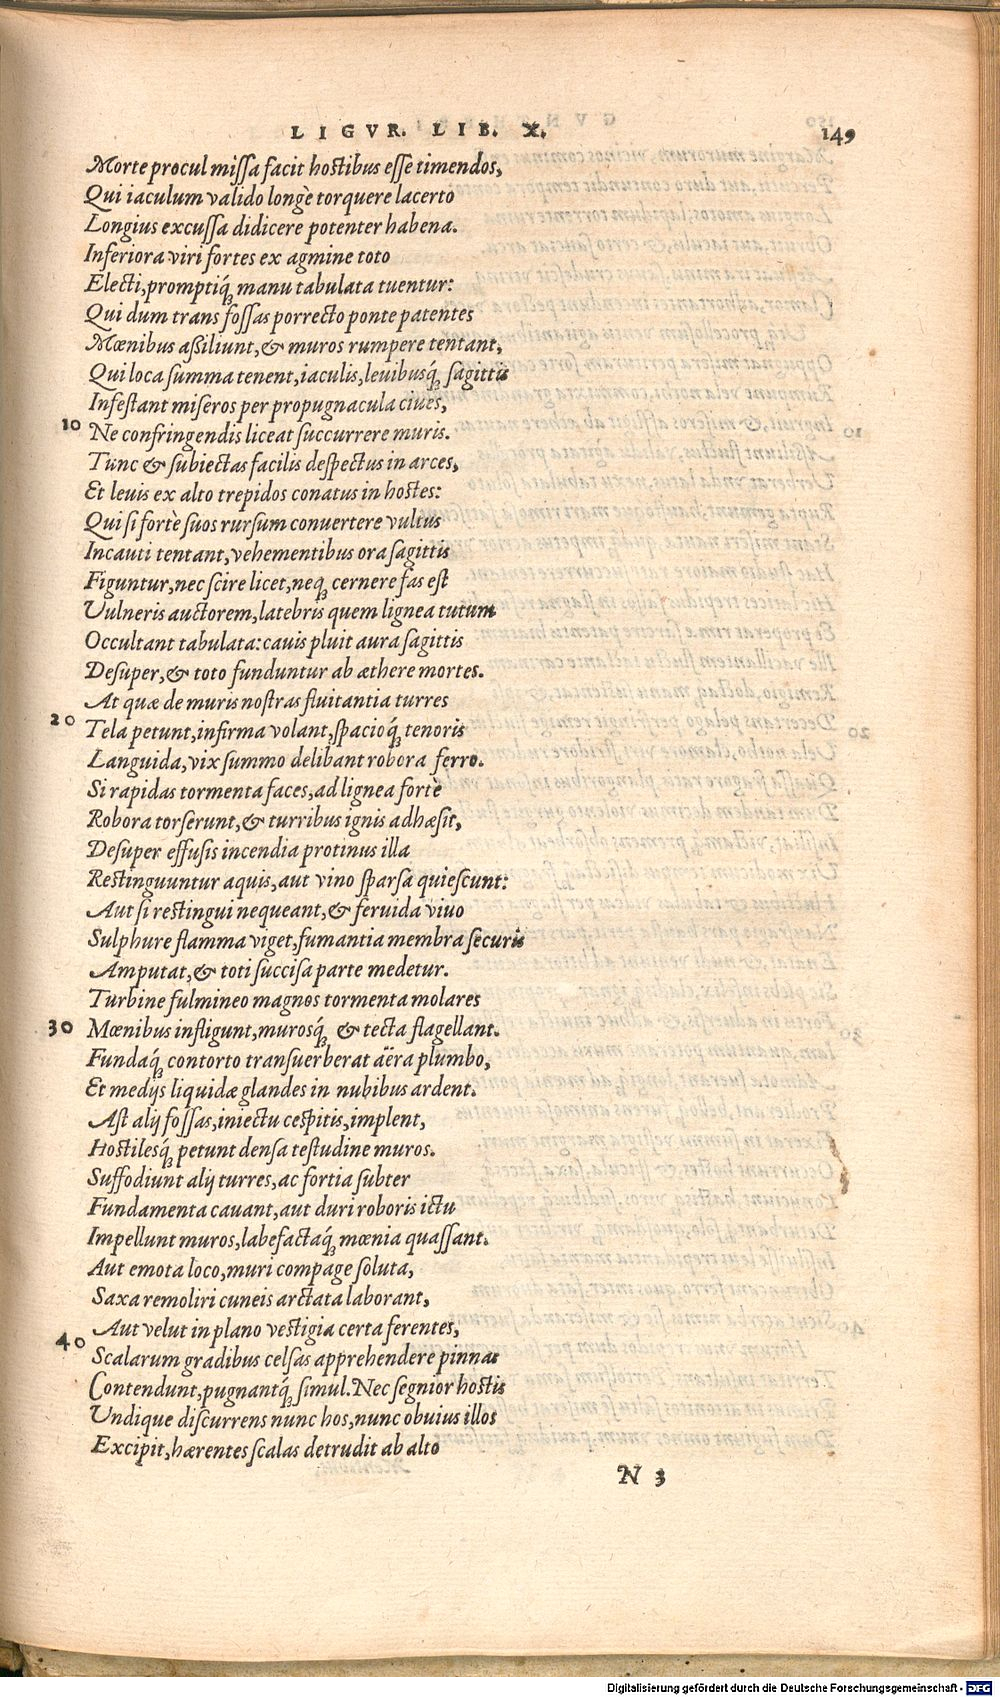 LIGVR. LIB. X. 149
Morte procul missa facit hostibus esse timendos,
Qui iaculum valido longè torquere lacerto
Longius excussa didicere potenter habena.
Inferiora viri fortes ex agmine toto
Electi, promptiq́; manu tabulata tuentur:
Qui dum trans fossas porrecto ponte patentes
Mœnibus aßiliunt, & muros rumpere tentant,
Qui loca summa tenent, iaculis, leuibusq́; sagittis
Infestant miseros per propugnacula ciues,
10 Ne confringendis liceat succurrere muris.
Tunc & subiectas facilis despectus in arces,
Et leuis ex alto trepidos conatus in hostes:
Qui si fortè suos rursum conuertere vultus
Incauti tentant, vehementibus ora sagittis
Figuntur, nec scire licet, neq; cernere fas est
Vulneris auctorem, latebris quem lignea tutum
Occultant tabulata: cauis pluit aura sagittis
Desuper, & toto funduntur ab æthere mortes.
At quæ de muris nostras fluitantia turres
20 Tela petunt, infirma volant, spacioq́; tenoris
Languida, vix summo delibant robora ferro.
Si rapidas tormenta faces, ad lignea forte
Robora torserunt, & turribus ignis adhæsit,
Desuper effusis incendia protinus illa
Restinguuntur aquis, aut vino sparsa quiescunt:
Aut si restingui nequeant, & feruida viuo
Sulphure flamma viget, fumantia membra securis
Amputat, & toti succisa parte medetur.
Turbine fulmineo magnos tormenta molares
30 Mœnibus infligunt, murosq́; & tecta flagellant.
Fundaq́; contorto transuerberat aëra plumbo,
Et medijs liquidæ glandes in nubibus ardent.
Ast alij fossas, iniectu cespitis, implent,
Hostilesq́; petunt densa testudine muros.
Suffodiunt alij turres, ac fortia subter
Fundamenta cauant, aut duri roboris ictu
Impellunt muros, labefactaq́; mœnia quassant.
Aut emota loco, muri compage soluta,
Saxa remoliri cuneis arctata laborant,
40 Aut velut in plano vestigia certa ferentes,
Scalarum gradibus celsas apprehendere pinnas
Contendunt, pugnantq́; simul. Nec segnior hostis
Undique discurrens nunc hos, nunc obuius illos
Excipit, hærentes scalas detrudit ab alto
N 3
Digitalisierung gefördert durch die Deutsche Forschungsgemeinschaft - DFG